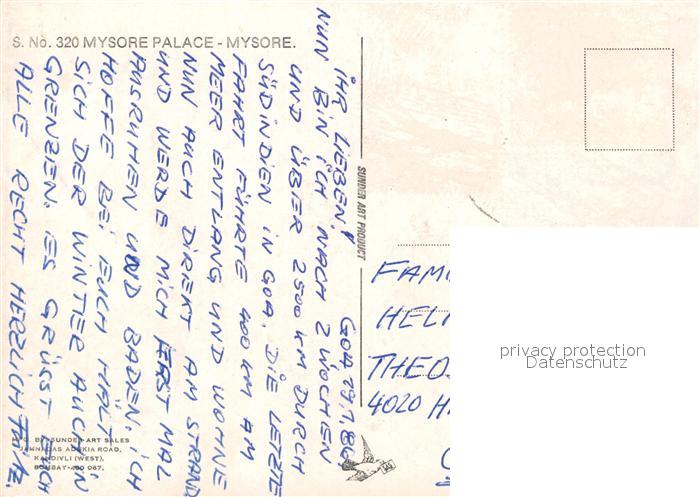 S. No. 320 MYSORE PALACE - MYSORE.
GOA, 29.1.86
IHR LIEBEN!
NUN BIN ICH NACH 2 WOCHEN
UND ÜBER 2500 KM DURCH
SÜDINDIEN IN GOA. DIE LETZTE
FAHRT FÜHRTE 400 KM AM
MEER ENTLANG UND WOHNE
NUN AUCH DIREKT AM STRAND
UND WERDE MICH ERST MAL
AUSRUHEN UND BADEN. ICH
HOFFE BEI EUCH HÄLT
SICH DER WINTER AUCH IN
GRENZEN. ES GRÜSST EUCH
ALLE RECHT HERZLICH
SUNDER ART PRODUCT
FAMI
HELM
THEO
4020 H
privacy protection
Datenschutz
MFG. BY SUNDER ART SALES
JAMNADAS ADUKIA ROAD,
KANDIVLI (WEST),
BOMBAY-400 067.